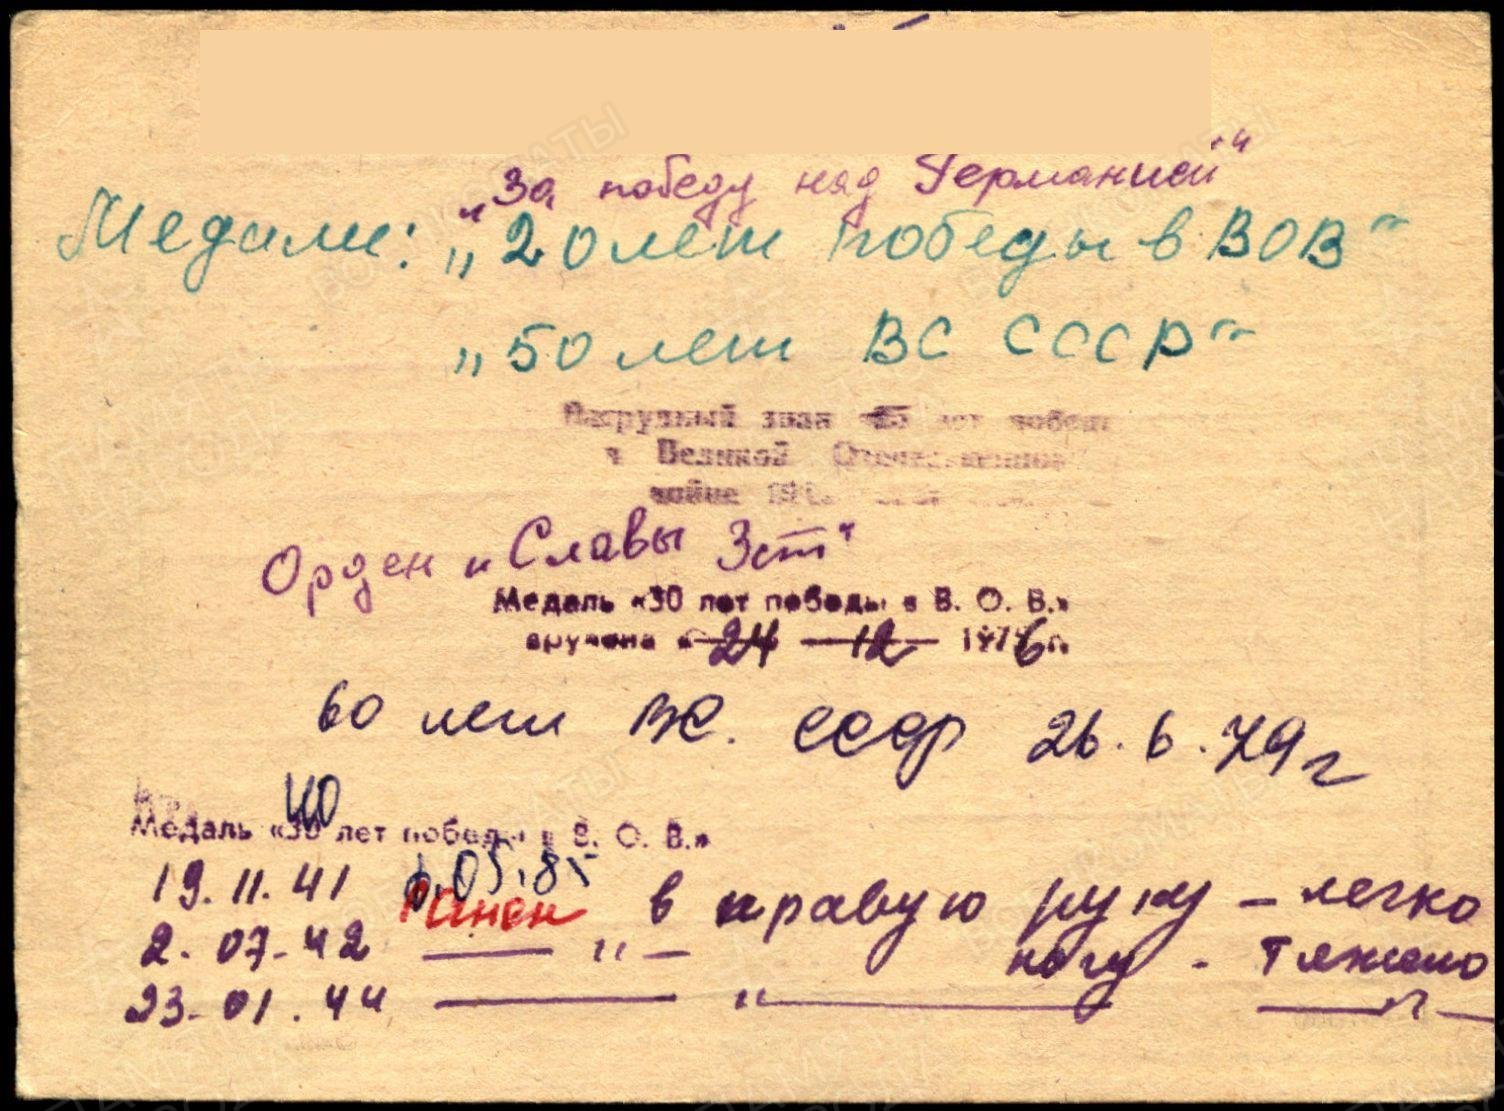 „За победу над Германией“
Медали: „20 лет победы в ВОВ“
„50 лет ВС СССР“
Нагрудный знак «25 лет победы
в Великой Отечественной
войне
Орден „Славы 3 ст“
Медаль «30 лет победы в В. О. В.»
вручена «24 — 12 — 1976 г.
60 лет ВС. СССР 26.6.79 г
40
Медаль «30 лет победы в В. О. В.»
6.05.85
19.11.41 Ранен в правую руку – легко
2.07.42 — " — ногу - тяжело
23.01.44 — " — — " —